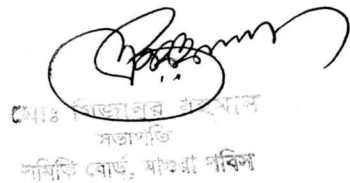 মোঃ মিজানুর রহমান
সভাপতি
সমিতি বোর্ড, মাগুরা পবিস